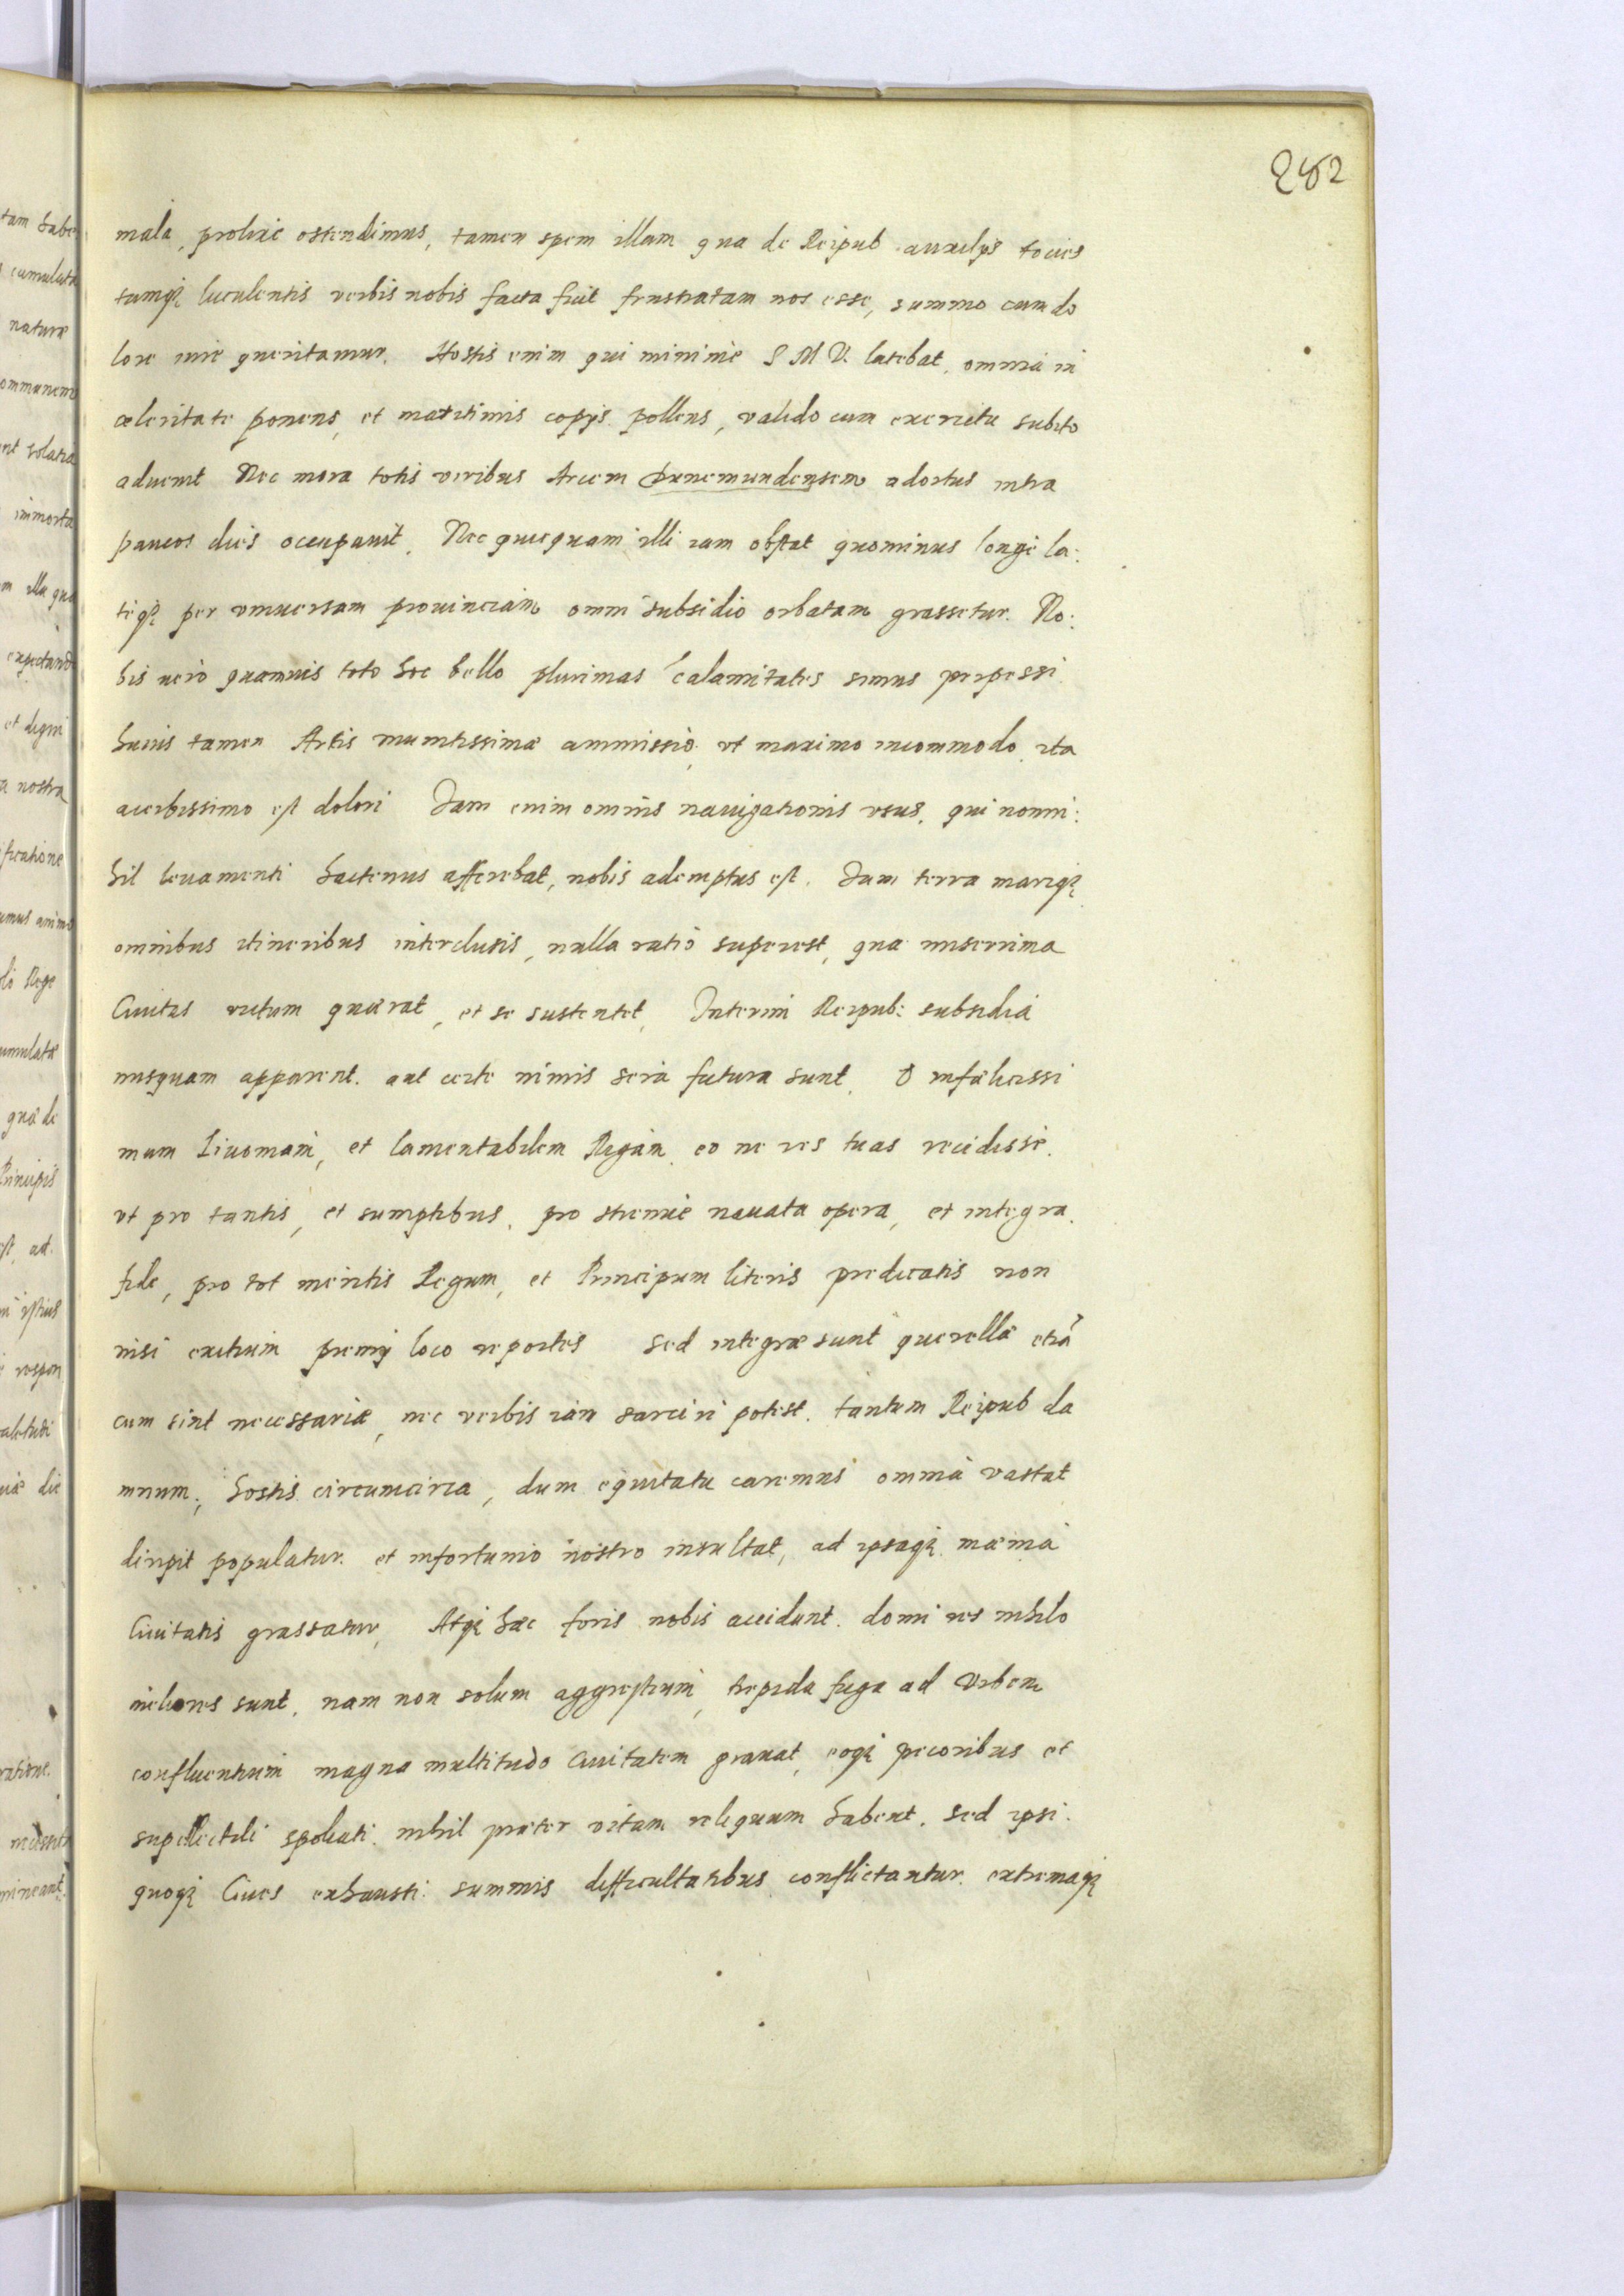 282
mala, prolixe ostendimus, tamen spem illam qua de Reipub. auxilijs toties
tumq; luculentis verbis nobis facta fuit frustratam nos esse, summo cum do
lore iure queritamur. Hostis enim qui minimè S M V. latebat, omnia in
celeritate ponens, et maritimis copijs pollens, valido cum exercitu subito
aduenit Nec mora totis viribus Arcem Dunemundensem adortus intra
paucos dies occupauit. Nec quicquam illi iam obstat quominus longè la:
teq; per vniuersam prouinciam omni subsidio orbatam grassetur. No:
bis uero quamuis toto hoc bello plurimas calamitates simus perpessi
huius tamen Artis munitissimæ ammissio, vt maximo incommodo, ita
acerbissimo est dolori Jam enim omnis nauigationis vsus, qui nonni:
hil leuamenti hactenus afferebat, nobis ademptus est. Jam terra mariq;
omnibus itineribus interclusis, nulla ratio superest, qua miserrima
Ciuitas victum quærat, et se sustentet, Interim Reipub: subsidia
nusquam apparent. aut certe nimis sera futura sunt. O infælicissi
mam Liuoniam, et lamentabilem Rigam, eo ne res tuas recidisse.
vt pro tantis, et sumptibus, pro strenuè nauata opera, et integra
fide, pro tot meritis Regum, et Principum literis predicatis non
nisi exitium premij loco reportes Sed integræ sunt querellæ etiã
cum sint necessariæ, nec verbis iam sarciri potest. tantum Reipub da
mnum; hostis circumcirca, dum equitatu caremus omnia vastat
diripit populatur. et infortunio nostro insultat, ad ipsaq; mænia
Ciuitatis grassatur, Atq; hæc foris nobis accidunt. domi res nihilo
meliores sunt, nam non solum aggrestium, trepida fuga ad Vrbem
confluentium magna multitudo Ciuitatem grauat, eoq; pecoribus et
supellectili spoliati nihil præter vitam reliquum habent. Sed ipsi
quoq; Ciues exhausti summis difficultatibus conflictantur. extremaq;